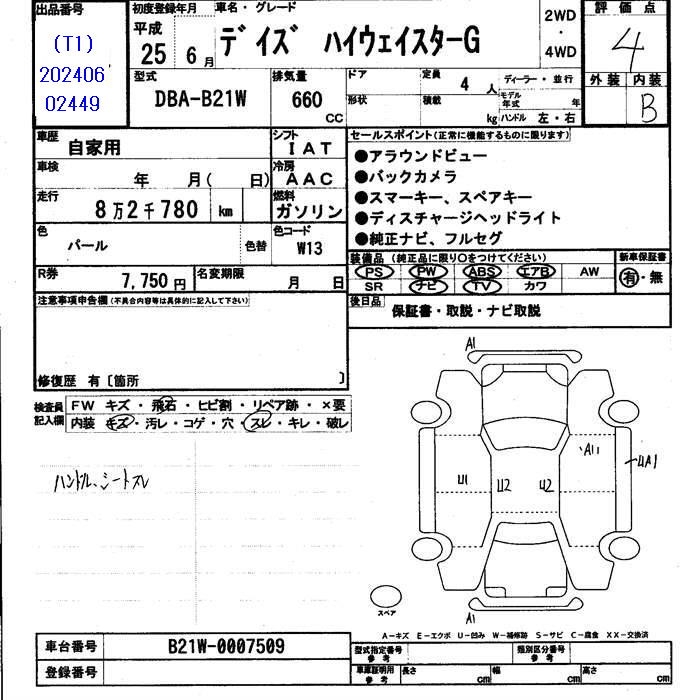 出品番号
(T1)
202406
02449
初度登録年月 車名・グレード
平成
25 6月 デイズ ハイウェイスターG
2WD
・
4WD
評価点
4
外装 内装
B
型式
DBA-B21W
排気量
660
CC
ドア 定員 4人
形状 積載 kg
ディーラー・並行
モデル年式 年
ハンドル 左・右
車歴
自家用
シフト
IAT
車検
年 月( 日)
冷房
AAC
走行
8万2千780 km
燃料
ガソリン
色
パール 色替
色コード
W13
R券
7,750円
名変期限
月 日
セールスポイント(正常に機能するものに限ります)
●アラウンドビュー
●バックカメラ
●スマーキー、スペアキー
●ディスチャージヘッドライト
●純正ナビ、フルセグ
装備品(純正品に限り○をつけてください)
PS PW ABS エアB AW
SR ナビ TV カワ
新車保証書
有・無
後日品
保証書・取説・ナビ取説
注意事項申告欄(不具合内容等は具体的に記入して下さい)
修復歴 有〔箇所 〕
検査員記入欄
FW キズ・飛石・ヒビ割・リペア跡・×要
内装 キズ・汚レ・コゲ・穴・スレ・キレ・破レ
ハンドル、シートスレ
A1
A11
UA1
U1 U2 U2
スペア
A1
A-キズ E-エクボ U-凹み W-補修跡 S-サビ C-腐食 XX-交換済
車台番号 B21W-0007509
登録番号
型式指定番号
参考
類別区分番号
参考
車庫証明用
参考
長さ cm 幅 cm 高さ cm